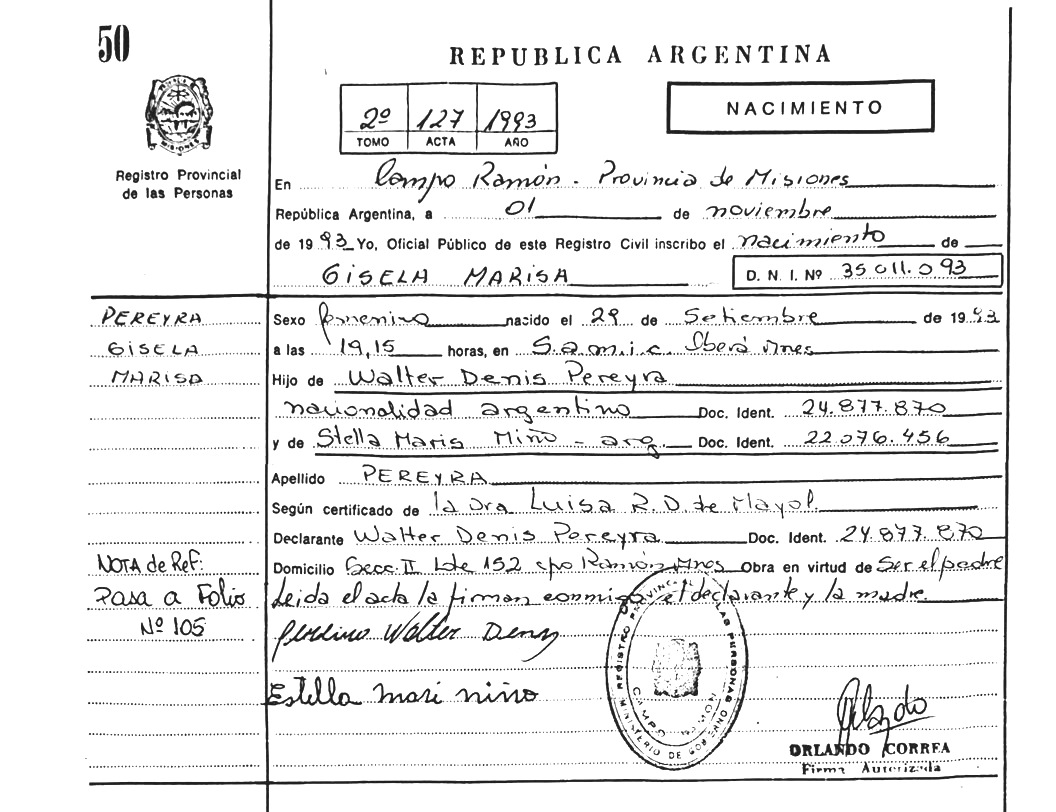 50
REPUBLICA ARGENTINA
2º 127 1993
TOMO ACTA AÑO
NACIMIENTO
MISIONES
Registro Provincial
de las Personas
En Campo Ramón - Provincia de Misiones
República Argentina, a 01 de noviembre
de 1993 Yo, Oficial Público de este Registro Civil inscribo el nacimiento de
GISELA MARISA D. N. I. Nº 35 011.093
PEREYRA
GISELA
MARISA
Sexo femenino nacido el 29 de Setiembre de 1993
a las 19,15 horas, en S.a.m.i.c. Oberá Mnes
Hijo de Walter Denis Pereyra
nacionalidad argentino Doc. Ident. 24.877.870
y de Stella Maris Miño - arg. Doc. Ident. 22.076.456
Apellido PEREYRA
Según certificado de la Dra Luisa R. D. de Mayol.
Declarante Walter Denis Pereyra Doc. Ident. 24.877.870
Domicilio Secc. II Lote 152 cpo Ramón Mnes Obra en virtud de Ser el padre
Leida el acta la firman conmigo el declarante y la madre.
NOTA de Ref:
Pasa a Folio
Nº 105
Walter Denis
Estella mari niño
REGISTRO PROVINCIAL DE LAS PERSONAS
MINISTERIO DE GOBIERNO
CAMPO RAMON
ORLANDO CORREA
Firma Autorizada